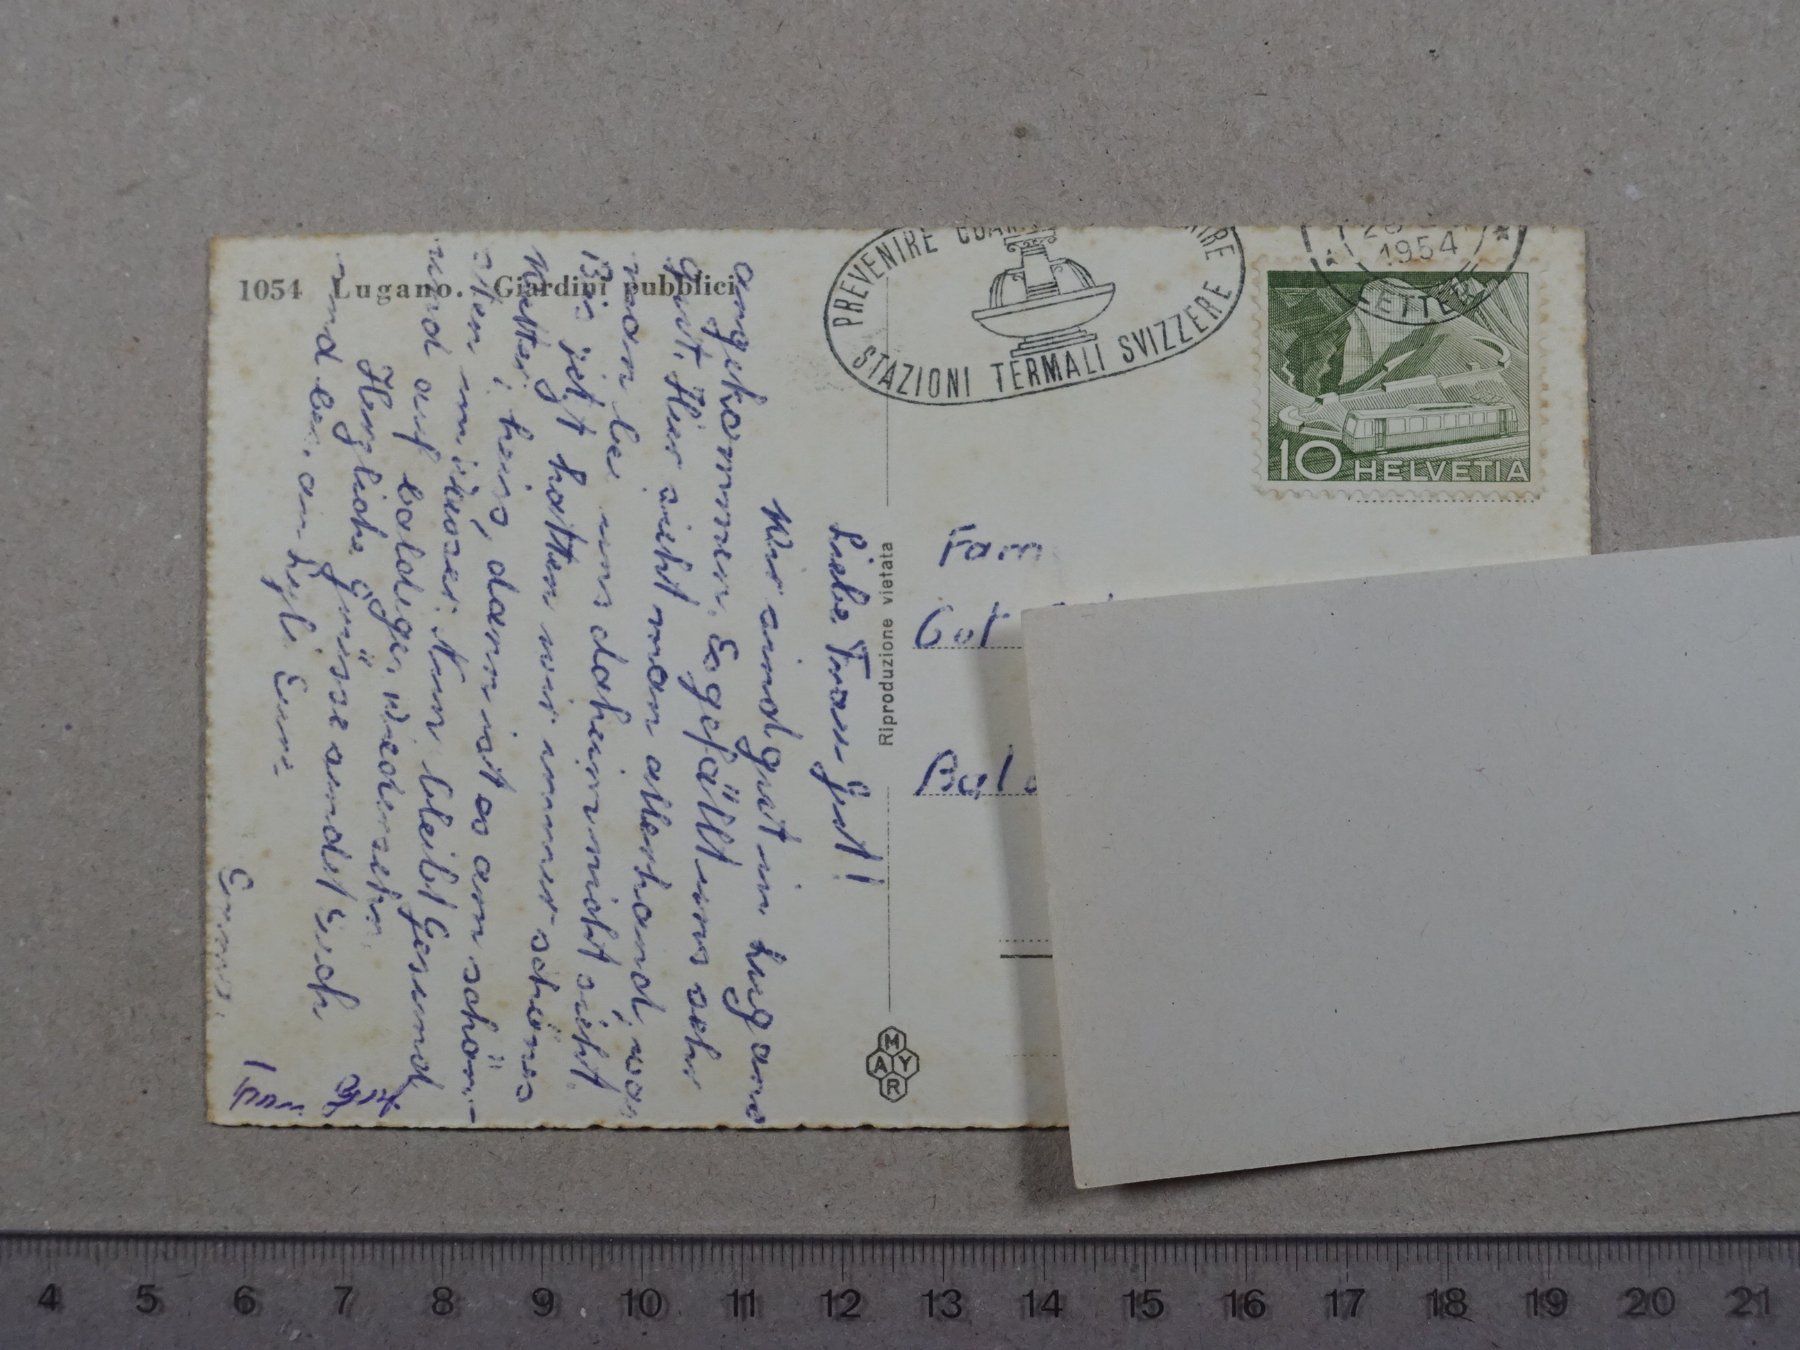 1054 Lugano. Giardini pubblici
PREVENIRE
STAZIONI TERMALI SVIZZERE
1954
LETTER
10 HELVETIA
Riproduzione vietata
MAYR
Fam
Liebe Frau Gut!
Wir sind gut in Lugano
angekommen. Es gefällt uns sehr
gut. Hier sieht man allerhand, was
man bei uns daheim nicht sieht.
Bis jetzt hatten wir immer schönes
Wetter, heiss, dann ist es am schön-
sten im Wasser. Nun bleibt Gesund
und auf baldiges Wiedersehn.
Herzliche Grüsse sendet Euch
und an
4 5 6 7 8 9 10 11 12 13 14 15 16 17 18 19 20 21